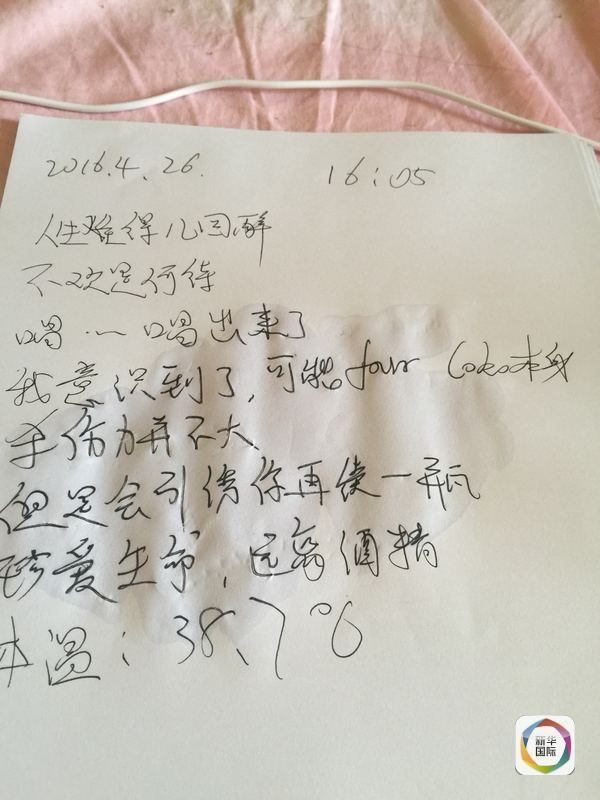 2016.4.26. 16:05
人生难得几回醉
不欢是何待
喝一一喝出来了
我意识到了,可能four Coko本身
杀伤力并不大
但是会引诱你再续一瓶
珍爱生命,远离酒精
体温:38.7°C
新华
国际